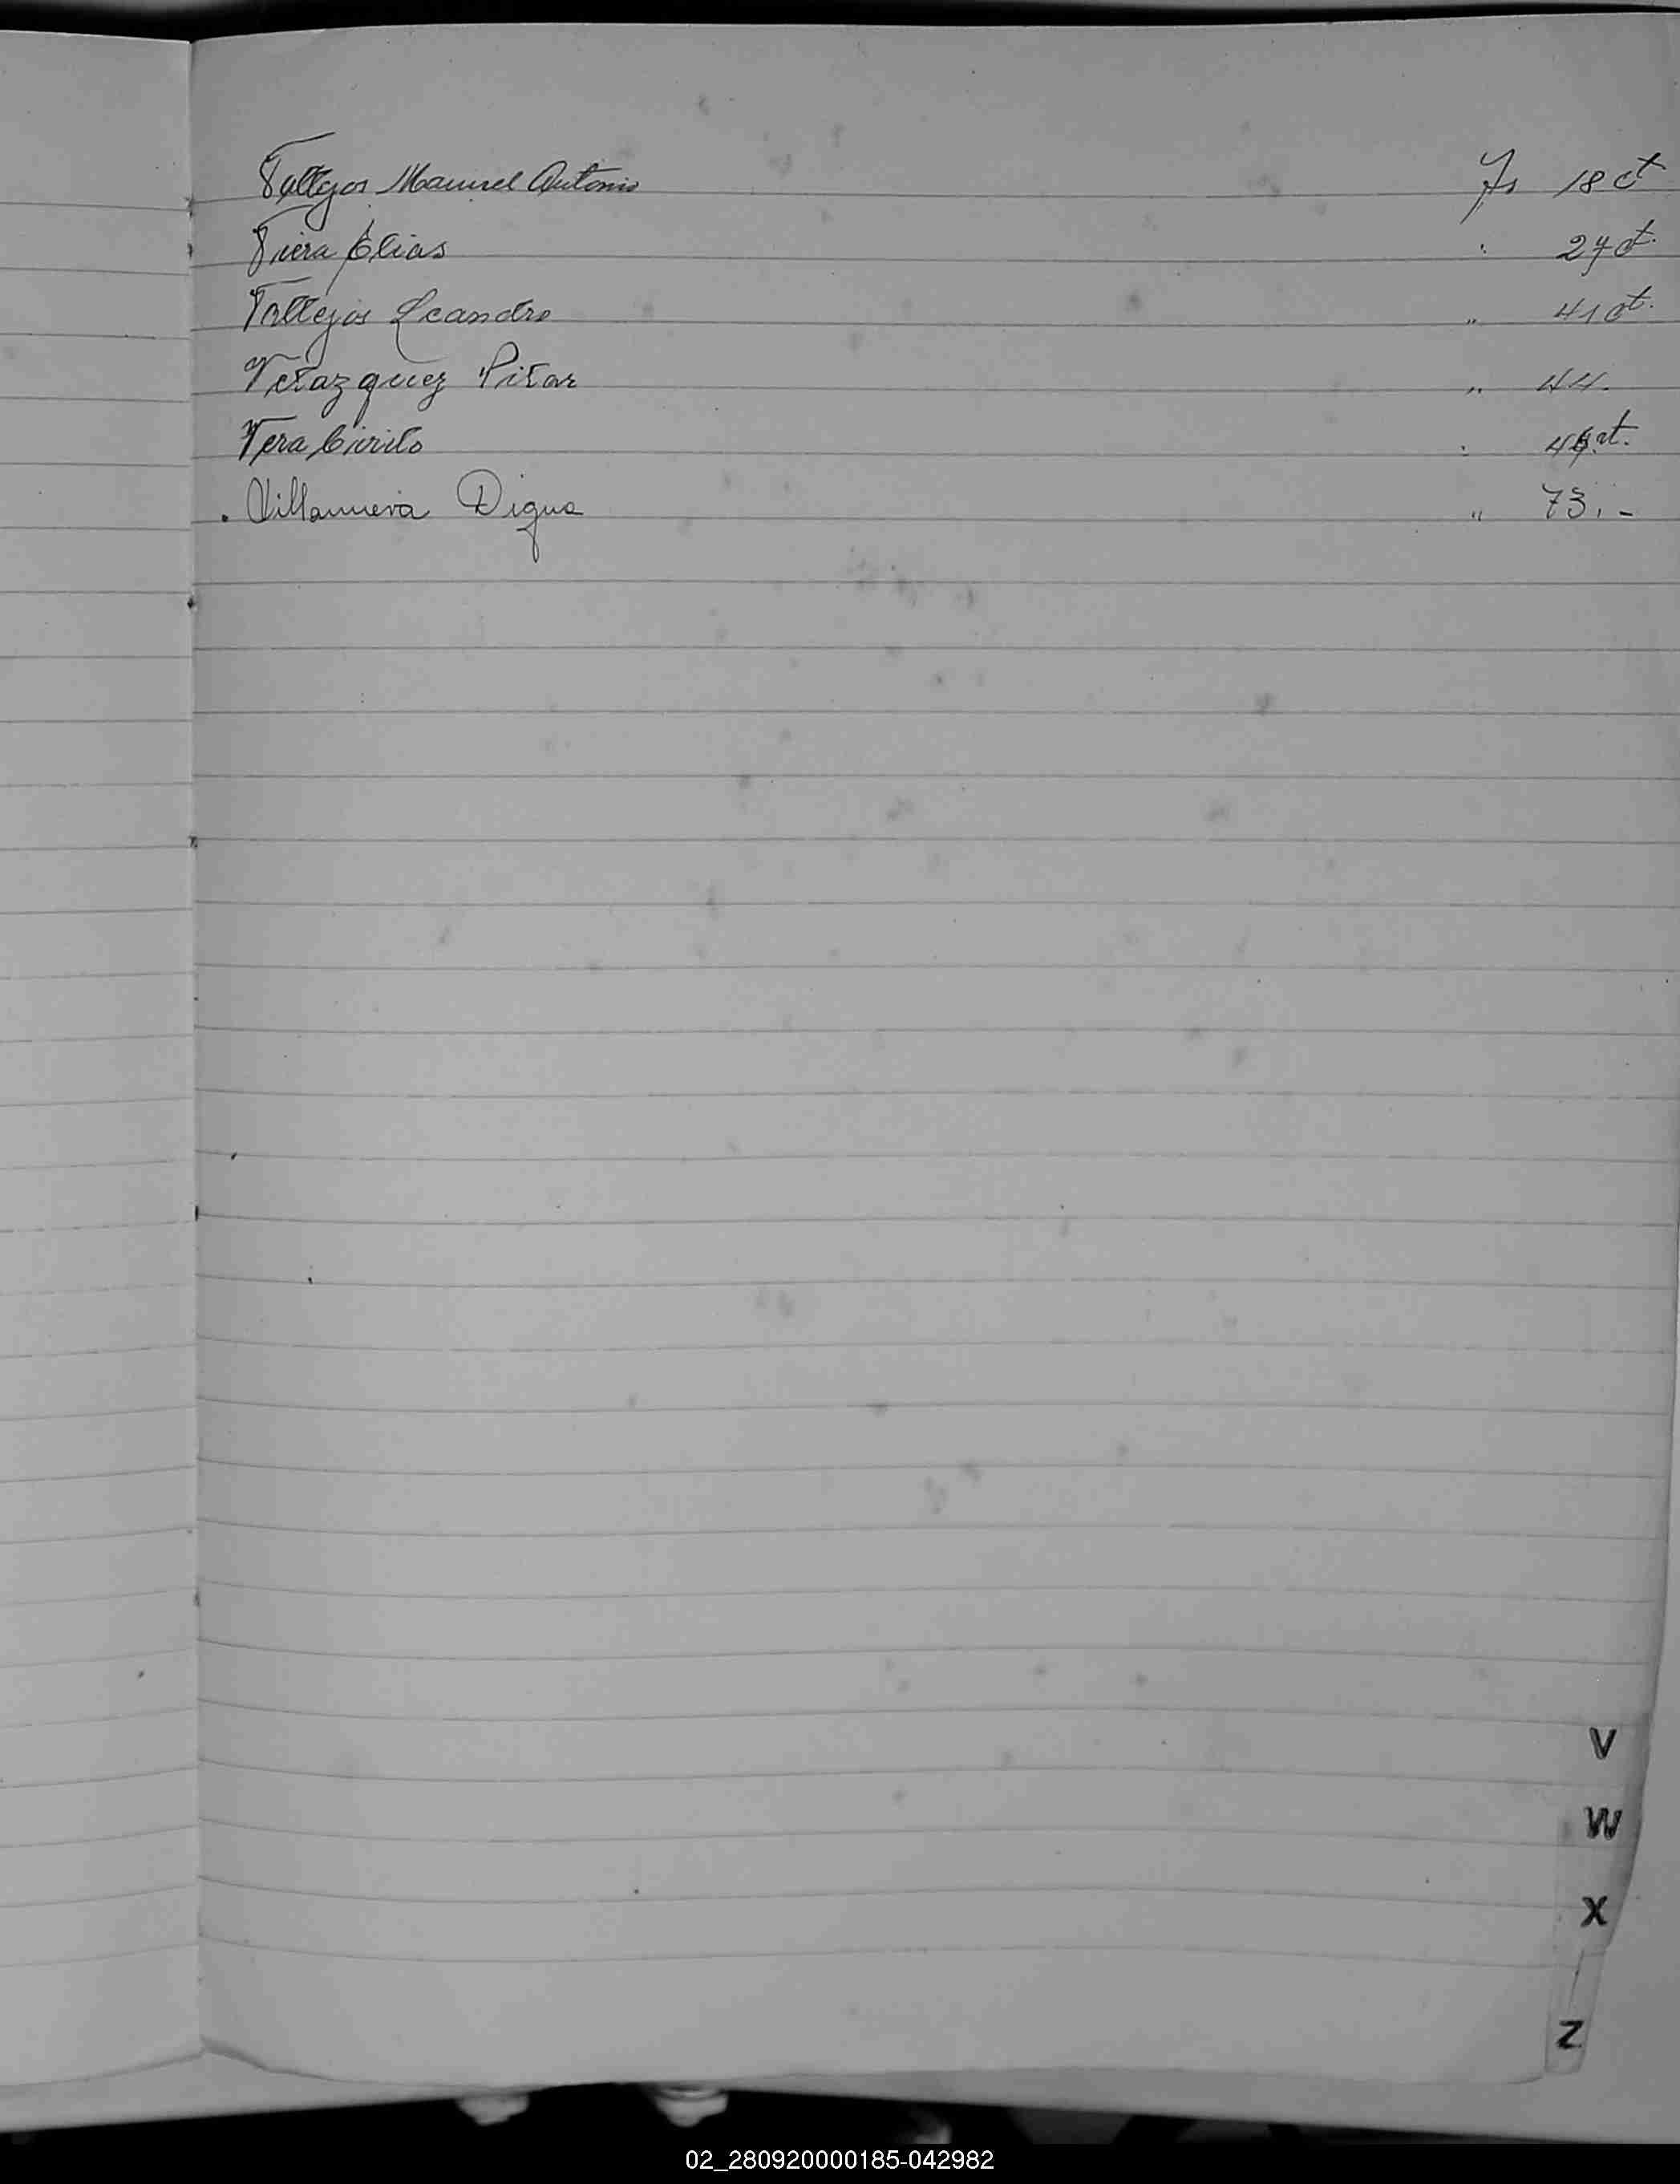 Vallejos Manuel Antonio fs 18 ct
Viera Elias " 27 ct.
Vallejos Leandro " 41 ct.
Velazquez Pilar " 44.
Vera Cirilo " ct.
. Villanueva Digna " 73.-
V
W
X
Z
02_280920000185-042982